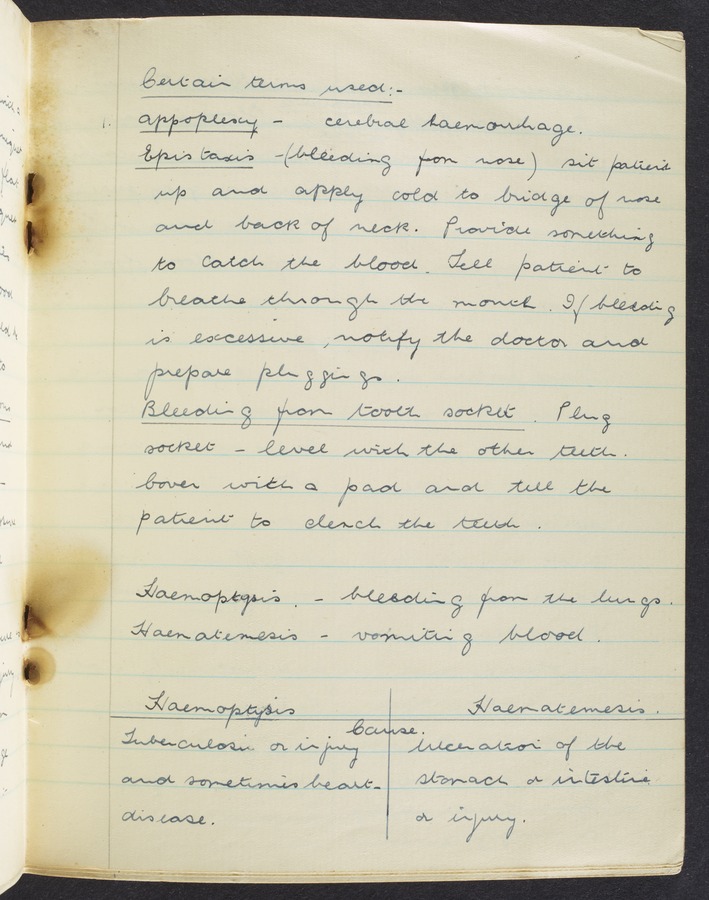 Certain terms used:-
1. appoplexy - cerebral haemorrhage.
Epistaxis - (bleeding from nose) sit patient
up and apply cold to bridge of nose
and back of neck. Provide something
to catch the blood. Tell patient to
breathe through the mouth. If bleeding
is excessive, notify the doctor and
prepare pluggings.
Bleeding from tooth socket. Plug
socket - level with the other teeth.
Cover with a pad and tell the
patient to clench the teeth.
Haemoptysis. - bleeding from the lungs.
Haematemesis - vomiting blood.
Haemoptysis Haematemesis.
Cause.
Tuberculosis or injury Ulceration of the
and sometimes heart- stomach or intestine
disease. or injury.